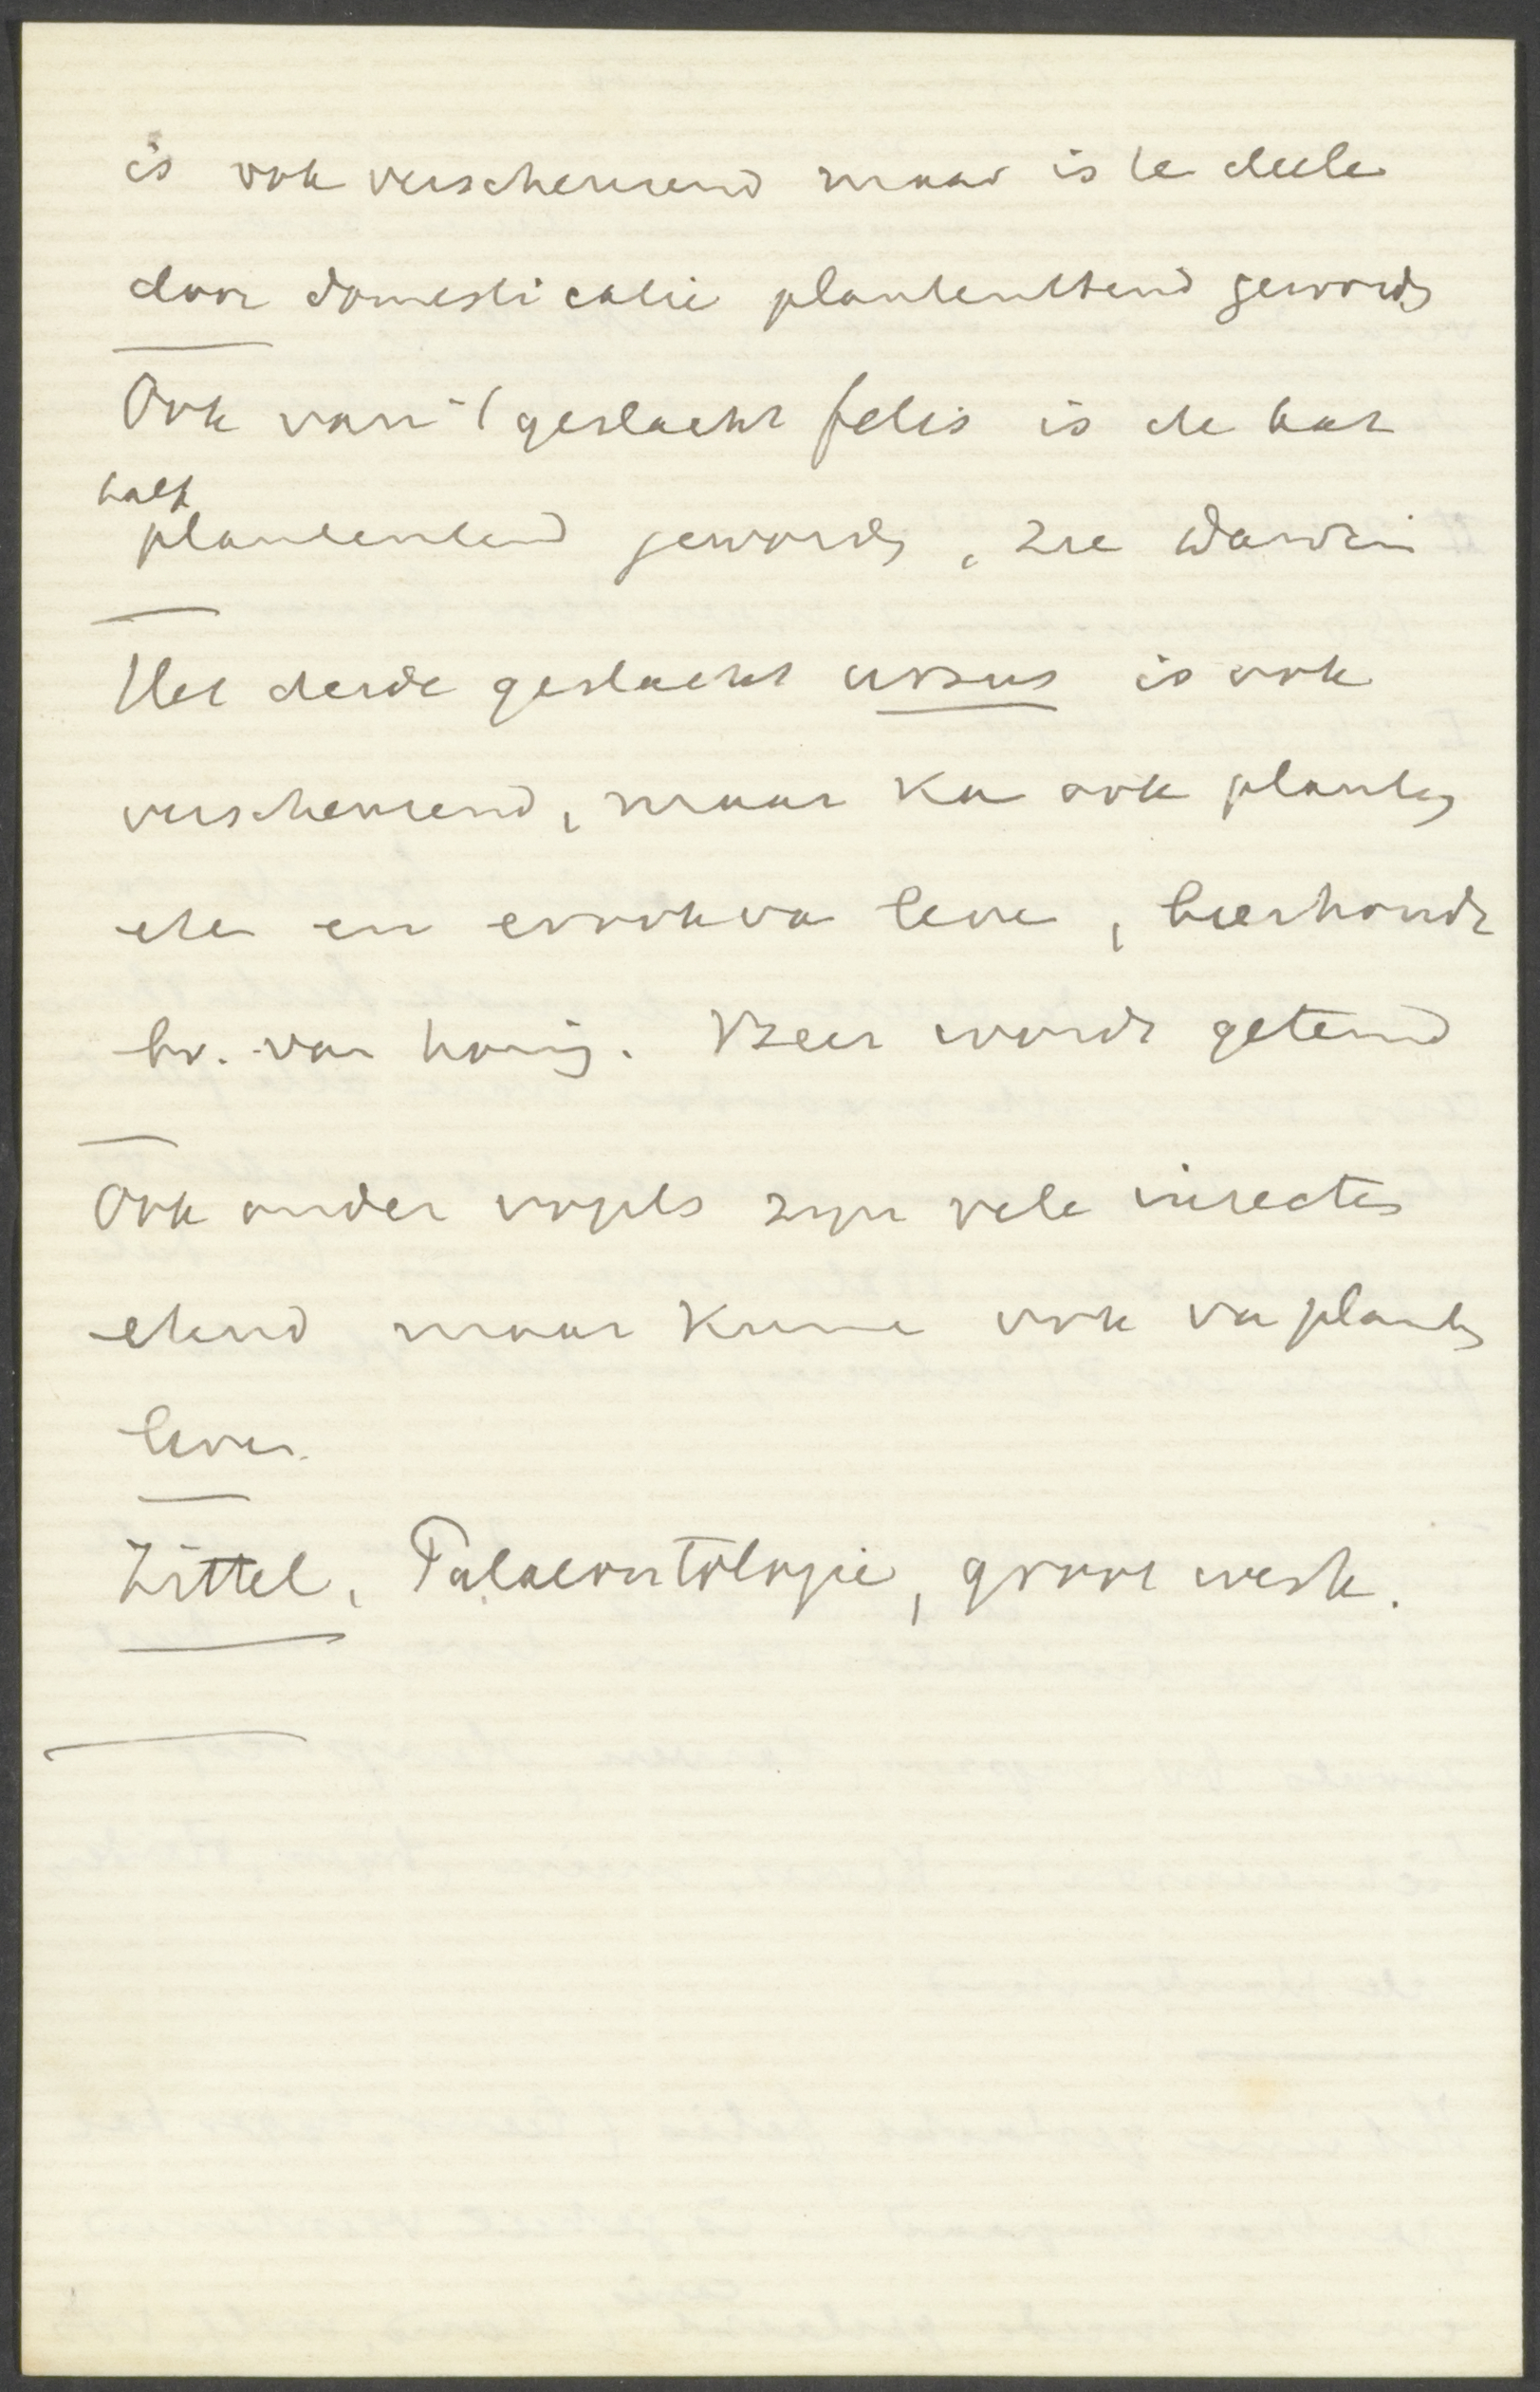 is ook verscheurend maar is te deele
door domesticatie plantenetend geword
Ook van 't geslacht felis is de kat
half
plantenetend geword, zie Darwin
Het derde geslacht ursus is ook
verscheurend, maar Ka ook plant
ete en er ook va leve,
bv. van honig. Beer wordt getemd
Ook onder vogels zijn vele insecten
etend maar Kunne ook va plant
leven.
Zittel, Palaeontologie, groot werk.